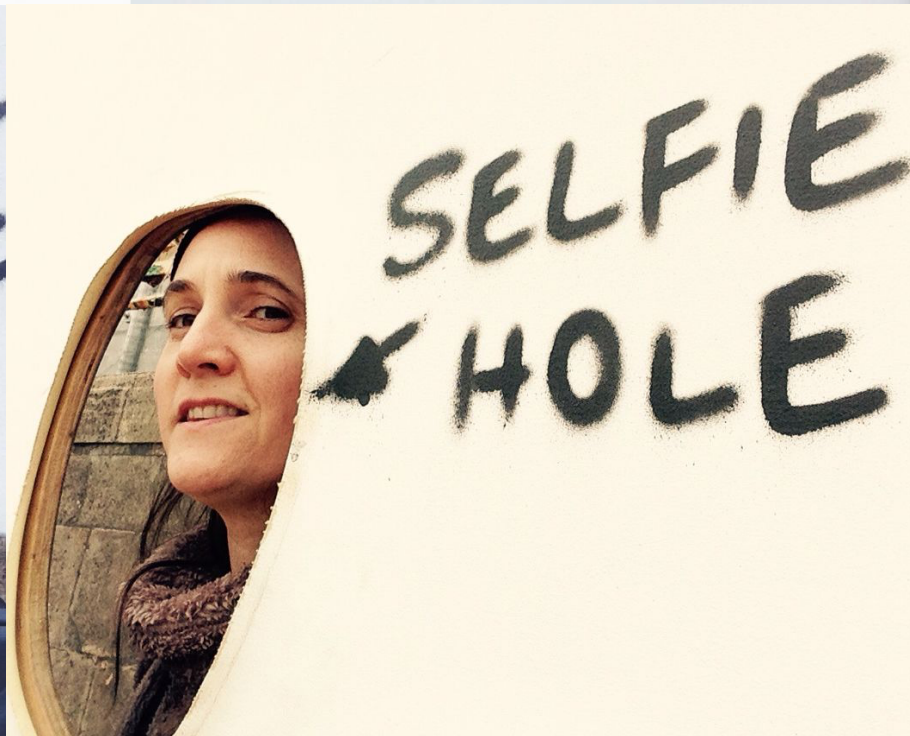 SELFIE
HOLE